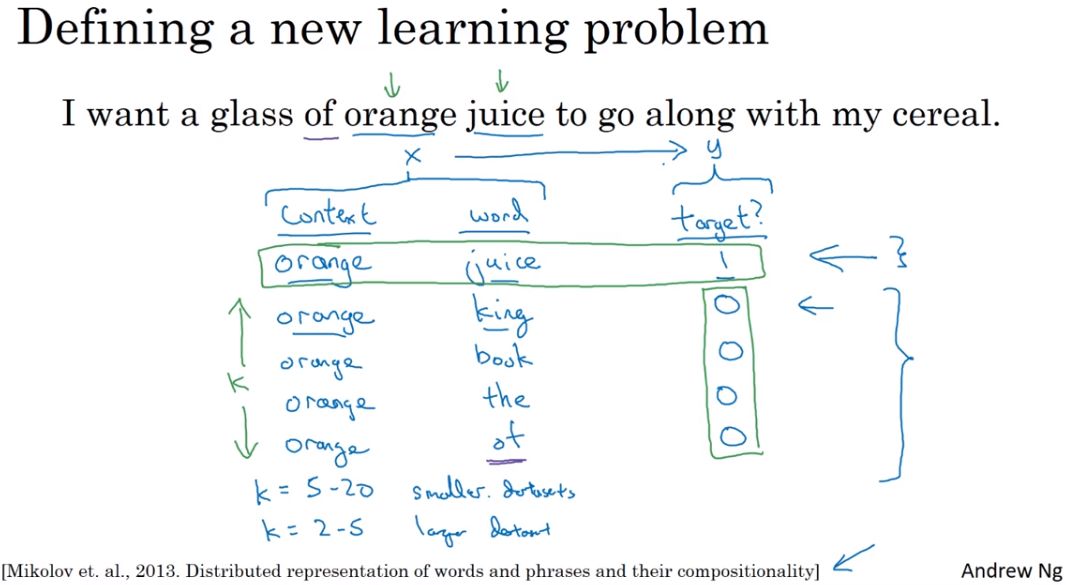 Defining a new learning problem
I want a glass of orange juice to go along with my cereal.
x y
Context word target?
orange juice 1
orange king 0
orange book 0
k
orange the 0
orange of 0
k = 5-20 smaller datasets
k = 2-5 larger dataset
[Mikolov et. al., 2013. Distributed representation of words and phrases and their compositionality] Andrew Ng